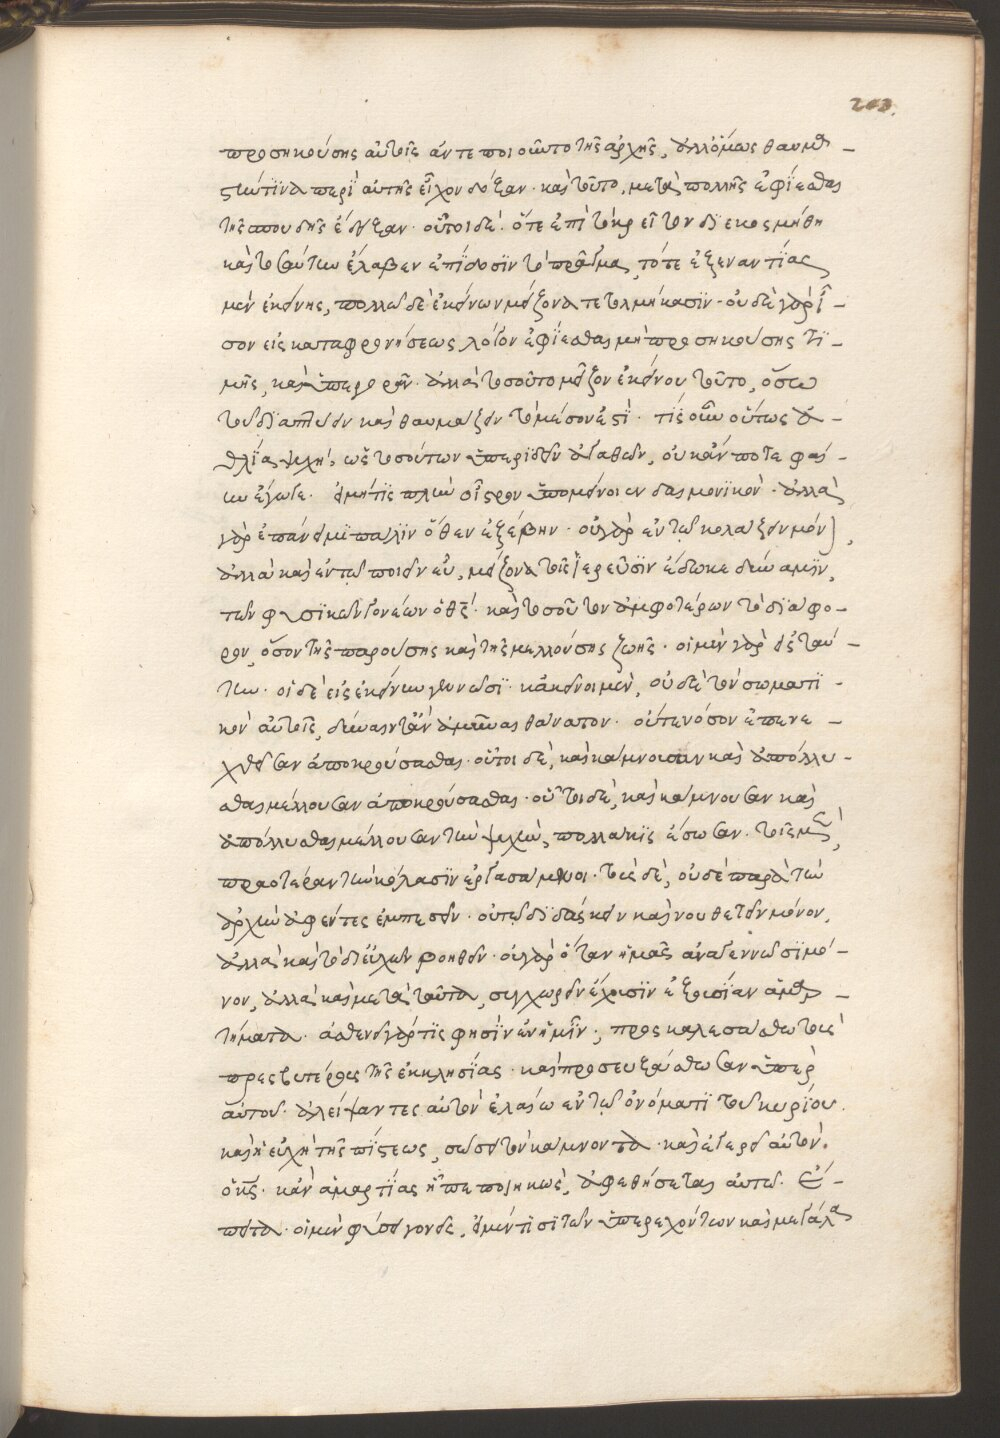 203.
προσηκούσης αὐτοῖς ἀντεποιοῦντο τῆς ἀρχῆς, ἀλλ' ὅμως θαυμα –
στὴν τινα περὶ αὐτῆς εἶχον δόξαν · καὶ τοῦτο, μετὰ πολλῆς ἐφίεσθαι
τῆς σπουδῆς ἔδοξαν · οὗτοι δὲ · ὅτε ἐπὶ τὸ κρεῖττον διεκοσμήθη
καὶ τοσαύτην ἔλαβεν ἐπίδοσιν τὸ πρᾶγμα, τότε ἐξεναντίας
μὲν ἐκείνης, πολλῶ δὲ ἐκείνων μείζονα τετολμήκασιν · οὐδὲ γὰρ ἶ –
σον εἰς καταφρονήσεως λόγον ἐφίεσθαι μὴ προσηκούσης τι –
μῆς, καὶ ὑπερορᾶν · ἀλλὰ τοσοῦτο μεῖζον ἐκείνου τοῦτο, ὅσω
τοῦ διαπτύειν καὶ θαυμάζειν τὸ μέσον ἐστὶ · τίς οὖν οὕτως ἀ –
θλία ψυχὴ, ὡς τοσούτων ὑπεριδεῖν ἀγαθῶν, οὐκ ἄν ποτε φαί –
ην ἔγωγε · εἰ μή τις πλὴν οἶστρον ὑπομένοιεν δαιμονικὸν · ἀλλὰ
γὰρ ἐπάνειμι πάλιν ὅθεν ἐξέβην · οὐ γὰρ ἐν τῶ κολάζειν μόνον,
ἀλλὰ καὶ ἐν τῶ ποιεῖν εὖ, μείζονα τοῖς ἱερεῦσιν ἔδωκε δύναμιν,
τῶν φυσικῶν γονέων ὁ θεὸς · καὶ τοσοῦτον ἀμφοτέρων τὸ διάφο –
ρον, ὅσον τῆς παρούσης καὶ τῆς μελλούσης ζωῆς · οἱ μὲν γὰρ εἰς ταύ –
την · οἱ δὲ εἰς ἐκείνην γεννῶσι · κἀκεῖνοι μὲν, οὐδὲ τὸν σωματι –
κὸν αὐτοῖς, δύναιντ' ἂν ἀμῦναι θάνατον · οὔτε νόσον ἐπενε –
χθεῖσαν ἀποκρούσασθαι · οὗτοι δὲ, καὶ κάμνουσαν καὶ ἀπόλλυ –
σθαι μέλλουσαν ἀποκρούσασθαι · οὗτοι δὲ, καὶ κάμνουσαν καὶ
ἀπόλλυσθαι μέλλουσαν τὴν ψυχὴν, πολλάκις ἔσωσαν · τοῖς μὲν,
πραοτέραν τὴν κόλασιν ἐργασάμενοι · τοὺς δὲ, οὐδὲ παρὰ τὴν
ἀρχὴν ἀφέντες ἐμπεσεῖν · οὐ τῶ διδάσκειν καὶ νουθετεῖν μόνον,
ἀλλὰ καὶ τὸ δι' εὐχῶν βοηθεῖν · οὐ γὰρ ὅταν ἡμᾶς ἀναγεννῶσι μό –
νον, ἀλλὰ καὶ μετὰ ταῦτα, συγχωρεῖν ἔχουσιν ἐξουσίαν ἁμαρ –
τήματα · ἀσθενεῖ γάρ τις φησὶν ἐν ἡμῖν ; προσκαλεσάσθω τοὺς
πρεσβυτέρους τῆς ἐκκλησίας · καὶ προσευξάσθωσαν ὑπὲρ
αὐτοῦ · ἀλείψαντες αὐτὸν ἐλαίω ἐν τῶ ὀνόματι τοῦ κυρίου ·
καὶ ἡ εὐχὴ τῆς πίστεως, σώσει τὸν κάμνοντα · καὶ ἐγερεῖ αὐτὸν
ὁ κς · κἂν ἁμαρτίας ἦ πεποιηκὼς, ἀφεθήσεται αὐτῶ · Ἔ –
πειτα · οἱ μὲν φύσει γονεῖς, εἰ μέν τισι τῶν ὑπερεχόντων καὶ μεγάλα